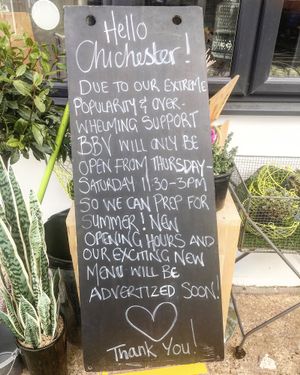 Hello
Chichester!
DUE TO OUR EXTREME
POPULARITY & OVER-
WHELMING SUPPORT
BBV WILL ONLY BE
OPEN FROM THURSDAY-
SATURDAY 11 30-3PM
SO WE CAN PREP FOR
SUMMER! NEW
OPENING HOURS AND
OUR EXCITING NEW
MENU WILL BE
ADVERTIZED SOON!
Thank You!